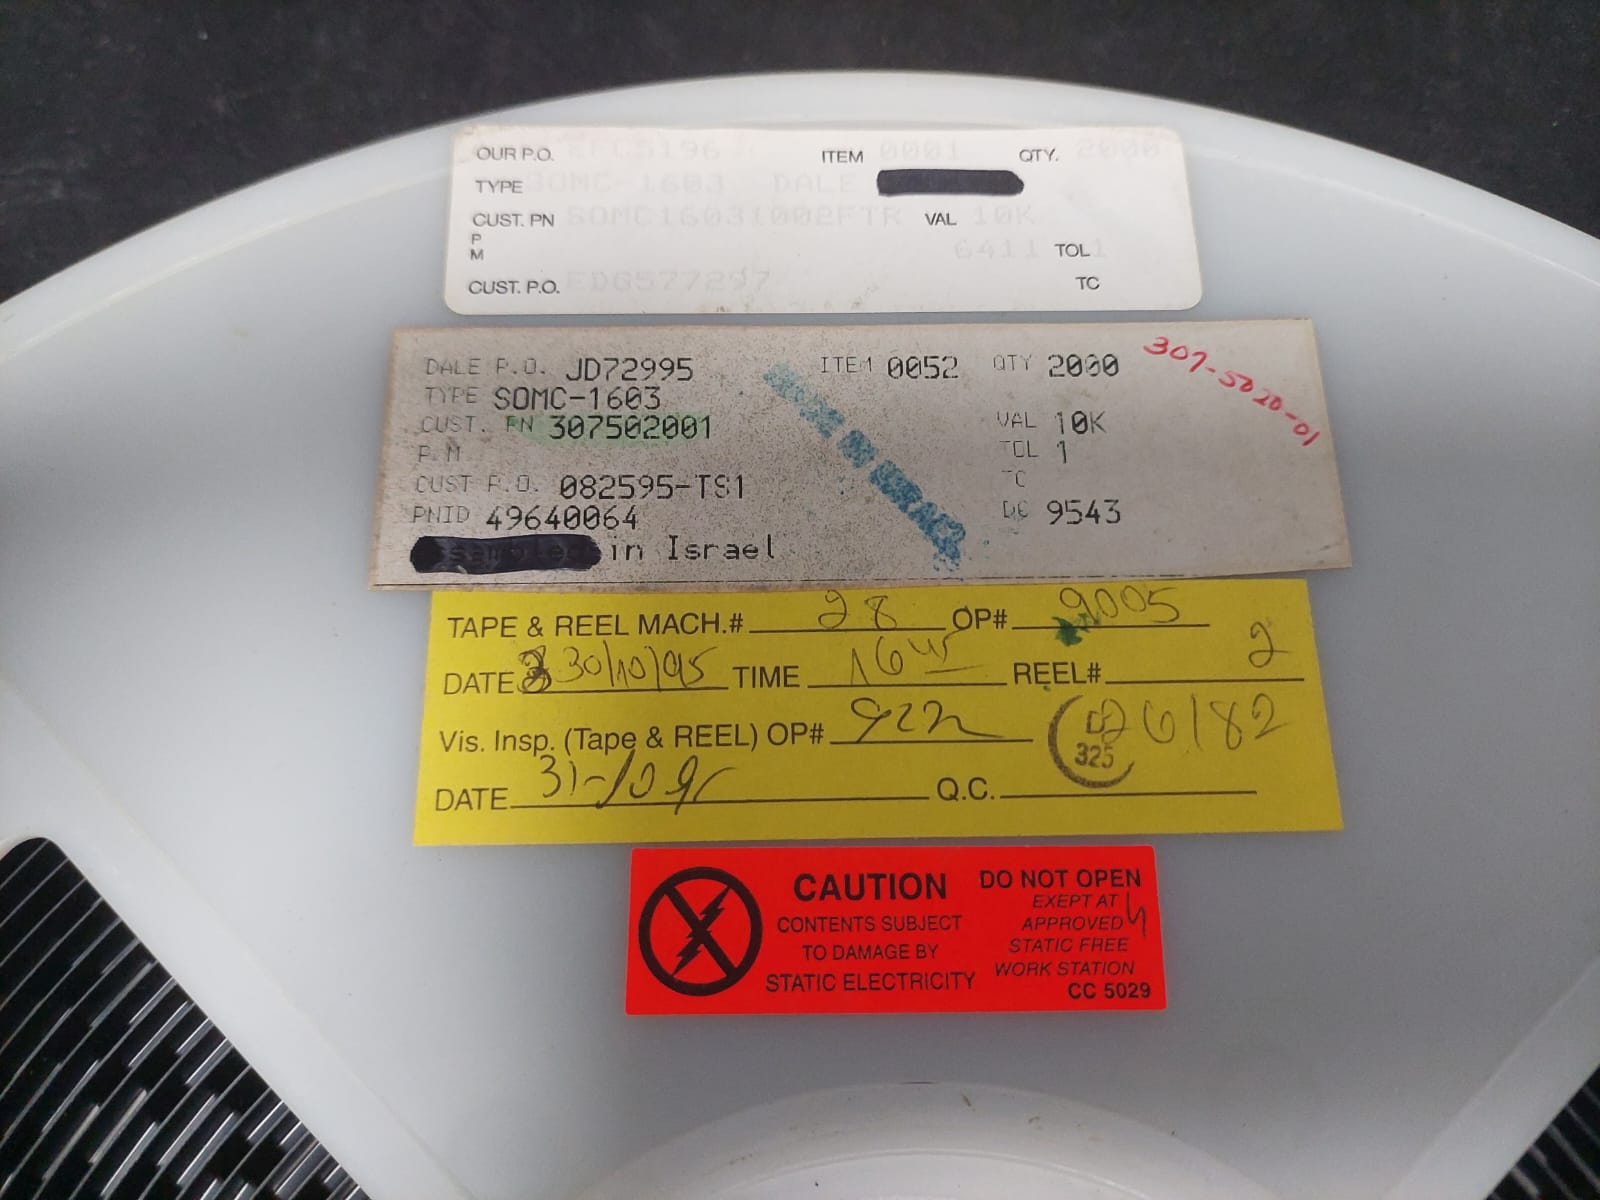 OUR P.O. EFC5196 ITEM 0001 QTY. 2000
TYPE SOMC-1603 DALE
CUST. PN SOMC16031002FTR VAL 10K
P
M
6411 TOL 1
CUST. P.O. EDG577297 TC
DALE P.O. JD72995 ITEM 0052 QTY 2000
307-5020-01
TYPE SOMC-1603
CUST. PN 307502001 VAL 10K
P.M TOL 1
CUST P.O. 082595-TS1 TC
PNID 49640064 DC 9543
in Israel
MADE IN ISRAEL
TAPE & REEL MACH.# 28 OP# 2005
DATE 30/10/95 TIME 16 REEL# 2
Vis. Insp. (Tape & REEL) OP# 922 26182
D
325
DATE 31-10 95 Q.C.
CAUTION
CONTENTS SUBJECT
TO DAMAGE BY
STATIC ELECTRICITY
DO NOT OPEN
EXEPT AT
APPROVED
STATIC FREE
WORK STATION
CC 5029